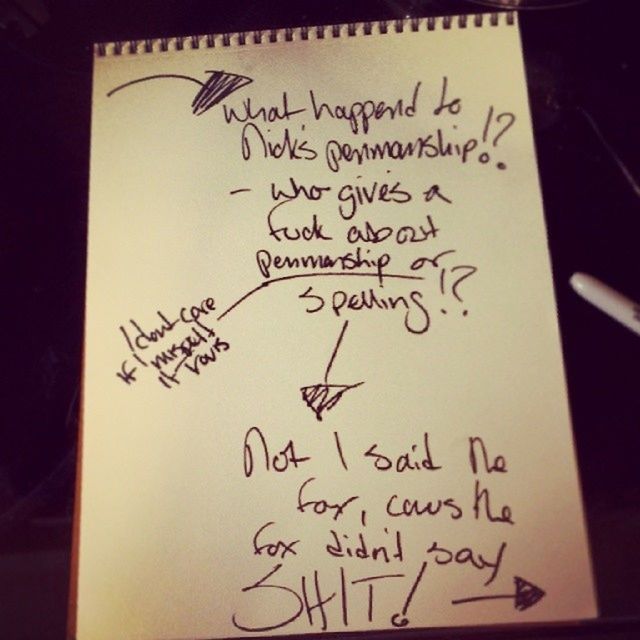 What happend to
Nick's penmanship!?
- who gives a
fuck about
penmanship or
spelling!?
I dont care
if I mispelt
it Travis
Not I said the
fox, caus the
fox didn't say
SHIT!